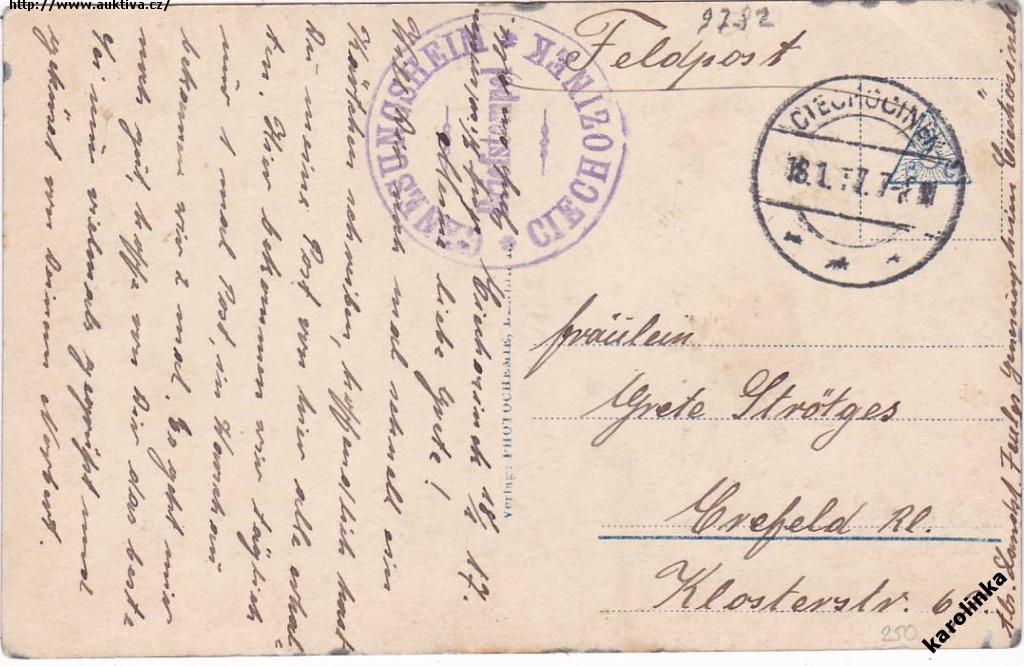 http://www.auktiva.cz/
9732
Feldpost
GENESUNGSHEIM * CIECHOZINEK *
CIECHOCINEK
18.1.17. 7-8 N
Ciechocinek 18/1 17.
Meine liebe Grete!
Will Dir schnell ein
Kärtchen schreiben, hoffentlich hast
Du meine Post von hier alle erhal-
ten. Hier bekommen wir täglich
nur 1 mal Post, in Warschau
bekamen wir 2 mal. Es geht mir
noch gut, hoffe von Dir das beste
Sei nun vielmals gegrüßt und
geküsst von Deinem Norbert.
Verlag: PHOTOCHEMIE,
Fräulein
Grete Strötges
Crefeld Rl.
Klosterstr. 6
250
Abs. Landst. Genesungsheim Ciechocinek
karolinka